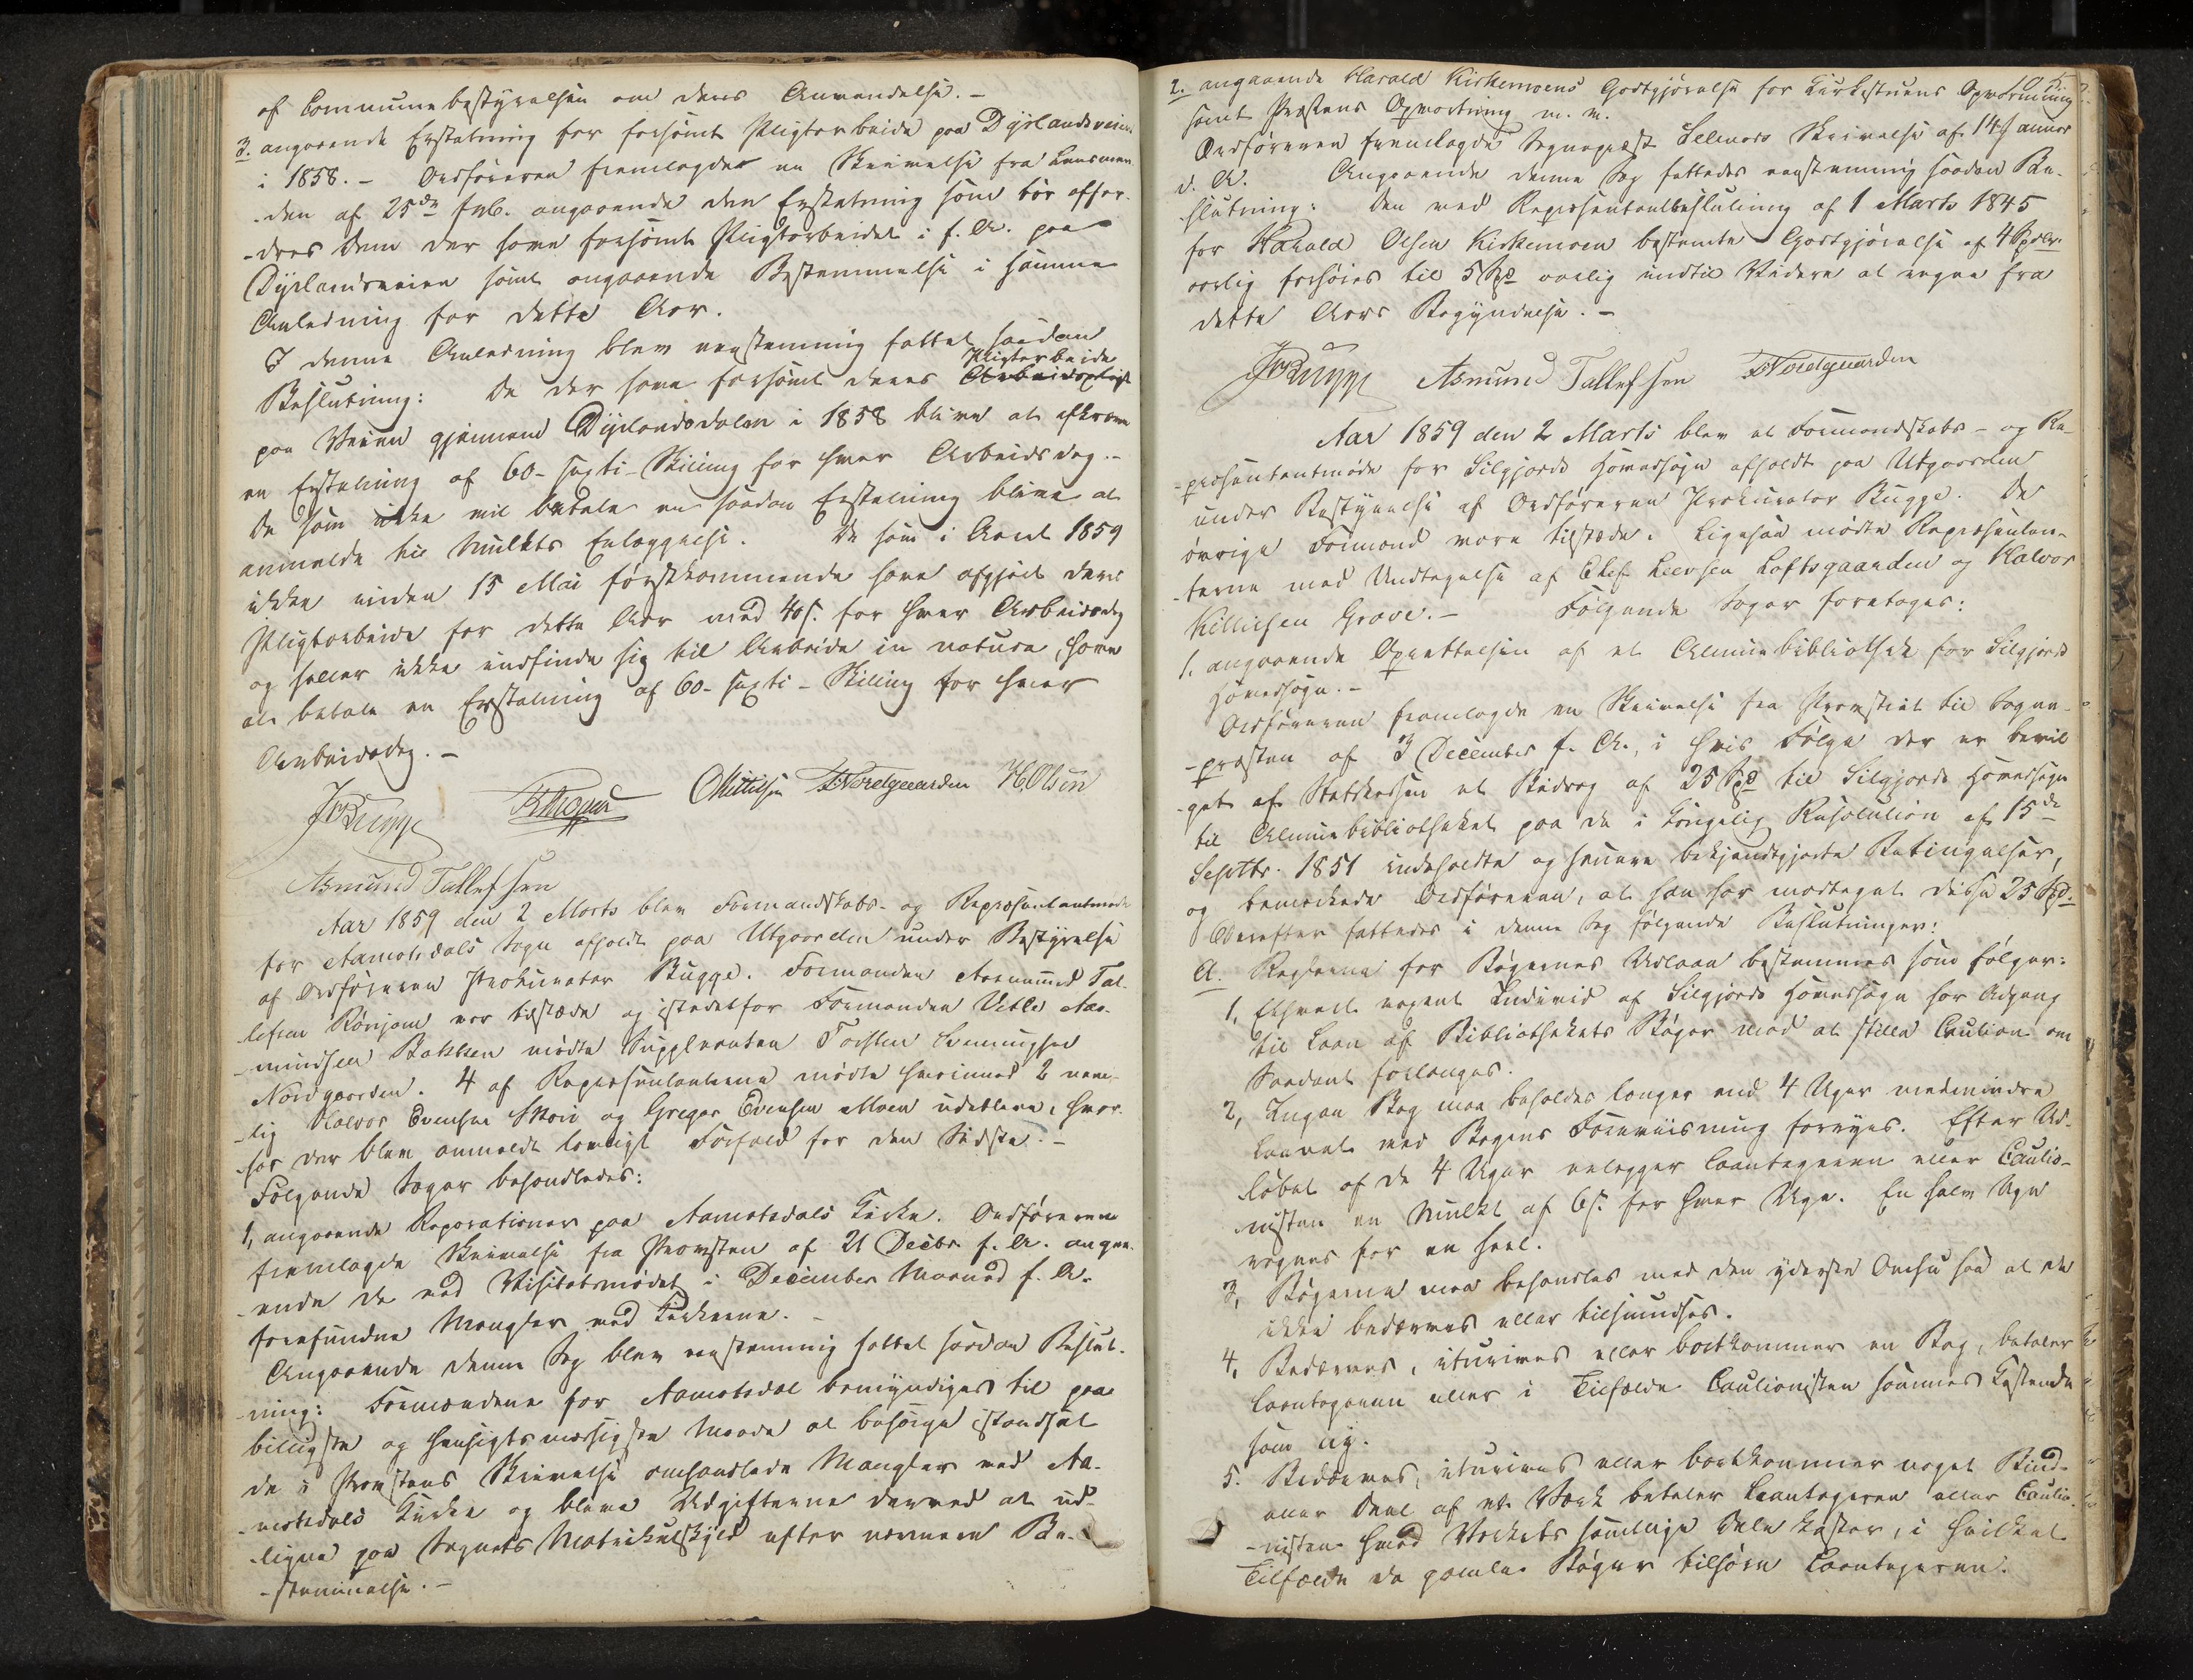 af Communebestyrelsen om deres Anvendelse. -
3. angaaende Erstatning for forsömt Pligtarbeide paa Dyrlandsveien
i 1858. - Ordföreren fremlagde en Skrivelse fra Lensman-
-den af 25de Feb. angaaende den Erstatning som bör affor-
-dres dem der have forsömt Pligtarbeidet i f. A. paa
Dyrlandsveien samt angaaende Bestemmelse i samme
Anledning for dette Aar.
I denne Anledning blev eenstemmig fattet saadan
Beslutning: De der have forsömt deres Pligtarbeide
paa Veien gjennem Dyrlandsdalen i 1858 blive at afkræve
en Erstatning af 60 - sexti - Skilling for hver Arbeidsdag. -
De som ikke vil betale en saadan Erstatning blive at
anmelde til Mulkts Erlæggelse. De som i Aaret 1859
ikke inden 15 Mai förstkommende have afgjort deres
Pligtarbeide for dette Aar med 40 s. for hver Arbeidsdag
og heller ikke indfinde sig til Arbeide in natura, have
at betale en Erstatning af 60 - sexti - Skilling for hver
Arbeidsdag. -
JBugge OKittilsen TNordgaarden HOlsen
Asmund Tallefsen
Aar 1859 den 2 Marts blev Formandskabs- og Repræsentantmöde
for Aamotsdals Sogn afholdt paa Utgaarden under Bestyrelse
af Ordföreren Prokurator Bugge. Formanden Asmund Tal-
lefsen Rönjom var tilstede og istedetfor Formanden Vetle Aas-
-mundsen Bakken mödte Supplianten Torsten Svenungsen
Nordgaarden. 4 af Repræsentanterne mödte hvorimod 2 nem-
-lig Halvor Evensen Skori og Gregar Evensen Moen udebleve, hvor-
for der blev anmeldt lovligt Forfald for den Sidste. -
Fölgende Sager behandledes:
1, angaaende Reparationer paa Aamotsdals Kirke. Ordföreren
fremlagde Skrivelse fra Provsten af 21 Decbr. f. A. angaa-
-ende de ved Visitatsmödet i December Maaned f. A.
forefundne Mangler ved Kirkerne. -
Angaaende denne Sag blev eenstemmig fattet saadan Beslut-
-ning: Formændene for Aamotsdal bemyndiges til paa
billigste og hensigtsmæssigste Maade at besörge istandsat
de i Provstens Skrivelse omhandlede Mangler ved Aa-
-motsdals Kirke og blive Udgifterne derved at ud-
ligne paa Sognets Matrikulskyld efter nærmere Be-
-stemmelse. -
2. angaaende Harald Kirkemoens Godtgjörelse for Kirkestuens Opvarmning
samt Præstens Opvartning m. m.
Ordföreren fremlagde Sognepræst Selmers Skrivelse af 14 Januar
d. A. Angaaende denne Sag fattedes eenstemmig saadan Be-
slutning: Den ved Repræsentantbeslutning af 1 Marts 1845
for Harald Olsen Kirkemoen bestemte Godtgjörelse af 4 Spdlr.
aarlig forhöies til 5 Spd aarlig indtil Videre at regne fra
dette Aars Begyndelse. -
JBugge Asmund Tallefsen TNordgaarden
Aar 1859 den 2 Marts blev et Formandskabs- og Re-
-præsentantmöde for Silgjords Hovedsogn afholdt paa Utgaarden
under Bestyrelse af Ordföreren Prokurator Bugge. De
övrige Formænd vare tilstede. Ligesaa mödte Repræsentan-
-terne med Undtagelse af Olef Leevsen Loftsgaarden og Halvor
Killielsen Grave. - Fölgende Sager foretoges:
1. angaaende Oprettelsen af et Almuebibliothek for Silgjords
Hovedsogn. -
Ordföreren fremlagde en Skrivelse fra Provstiet til Sogne-
-præsten af 3 December f. A., i hvis Fölge der er bevil-
-get af Statskassen et Bidrag af 25 Spd til Silgjords Hovedsogn
til Almuebibliotheket paa de i Kongelig Resolution af 15de
Septbr. 1851 indeholdte og senere bekjendtgjorte Betingelser,
og bemærkede Ordföreren, at han har modtaget disse 25 Spd.
Derefter fattedes i denne Sag fölgende Beslutninger:
A. Reglerne for Bögernes Udlaan bestemmes som fölger:
1, Ethvert voxent Individ af Silgjords Hovedsogn har Adgang
til Laan af Bibliothekets Böger mod at stille Caution om
Saadant forlanges.
2, Ingen Bog maa beholdes længer end 4 Uger medmindre
Laanet med Bogens Foreviisning fornyes. Efter Ud-
löbet af de 4 Uger erlægger Laantageren eller Cautio-
nisten en Mulkt af 6 s. for hver Uge. En halv Uge
regnes for en heel.
3, Bögerne maa behandles med den yderste Omhu saa at de
ikke bedærves eller tilsmudses.
4, Bedærves, iturives eller bortkommer en Bog, betaler
Laantageren eller i Tilfælde Cautionisten sammes Kostende
som ny.
5. Bedærves, iturives eller bortkommer noget Bind
eller Deel af et Værk betaler Laantageren eller Cautio-
-nisten hvad Værkets samtlige Dele koster, i hvilket
Tilfælde de gamle Böger tilhöre Laantageren.